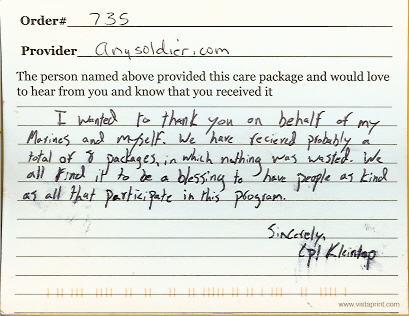 Order# 735
Provider anysoldier.com
The person named above provided this care package and would love
to hear from you and know that you received it
I wanted to thank you on behalf of my
Marines and myself. We have recieved probably a
total of 8 packages, in which nothing was wasted. We
all find it to be a blessing to have people as kind
as all that participate in this program.
Sincerely,
Cpl Kleintop
www.vistaprint.com